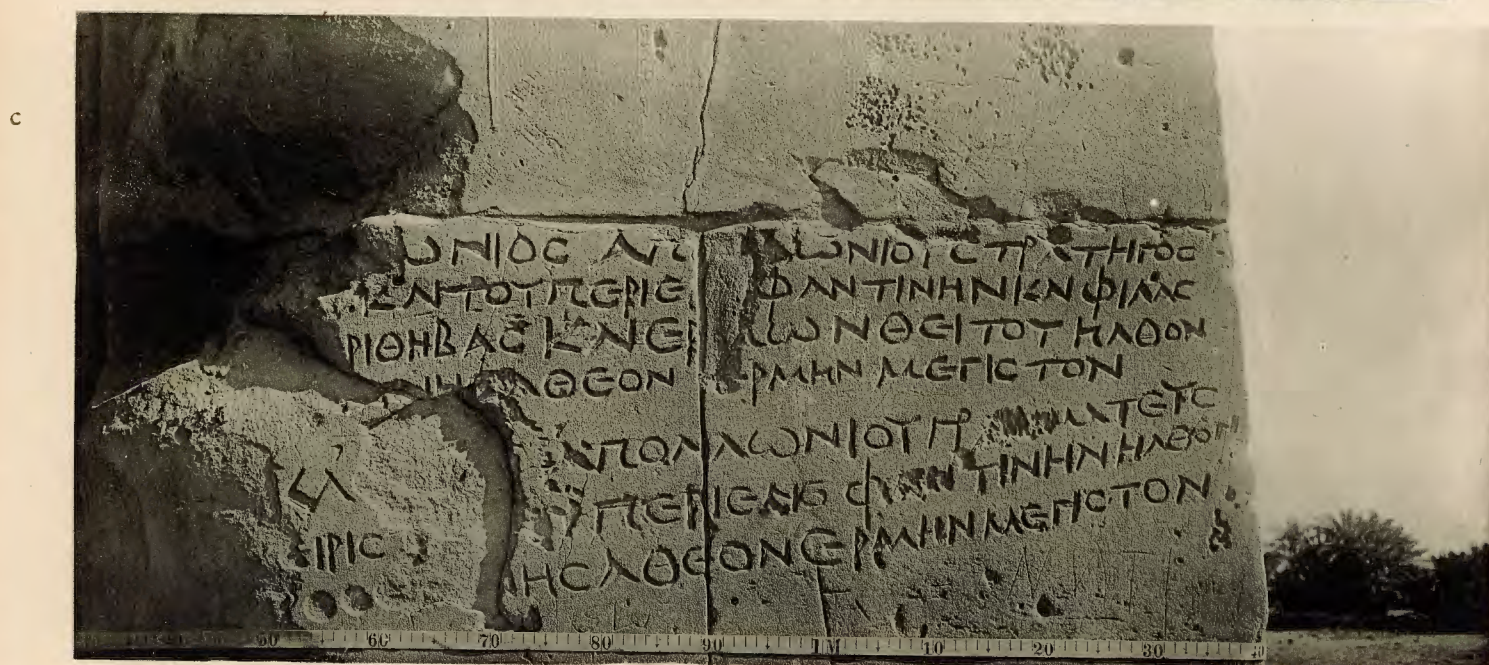 C
ΩΝΙΟC ΑΠ ΛΩΝΙΟΥ CΤΡΑΤΗΓΟC
ΚΑΙ ΤΟΥ ΠΕΡΙ Ε ΦΑΝΤΙΝΗΝ ΚΑΙ ΦΙΛΑC
ΡΙ ΘΗΒΑC ΚΑΙ ΕΡ ΩΝΘΕΙΤΟΥ ΗΛΘΟΝ
Α ΘΕΟΝ ΕΡΜΗΝ ΜΕΓΙCΤΟΝ
ΑΠΟΛΛΩΝΙΟΥ ΓΡΑΜΜΑΤΕΥC
ΠΕΡΙ ΕΛΕΦΑΝΤΙΝΗΝ ΗΛΘΟΝ
ΙΡΙC ΗCΑ ΘΕΟΝ ΕΡΜΗΝ ΜΕΓΙCΤΟΝ
60 70 80 90 1M 10 20 30 40